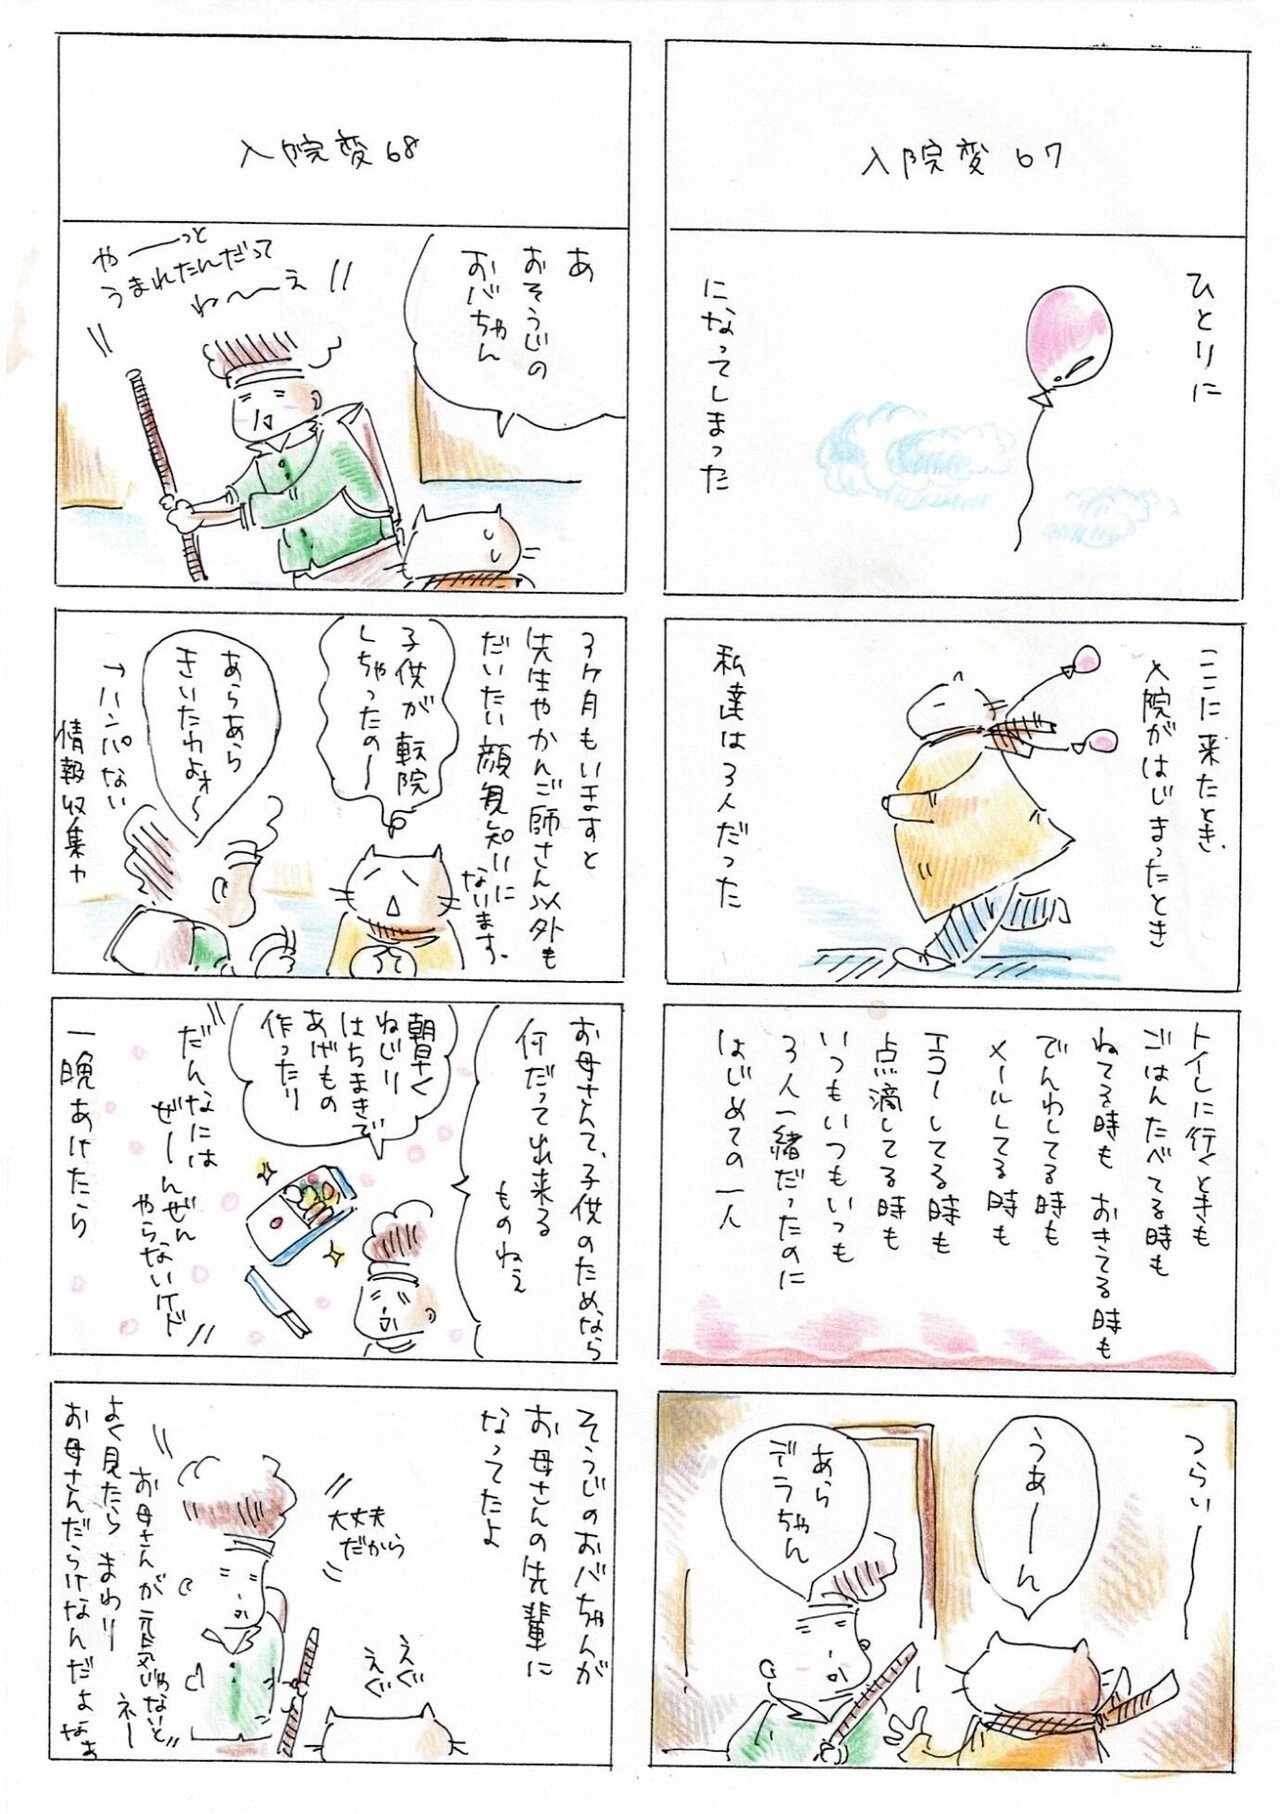 入院変67
ひとりに
になってしまった
ここに来たとき、
入院がはじまったとき
私達は3人だった
トイレに行くときも
ごはんたべてる時も
ねてる時も おきてる時も
でんわしてる時も
メールしてる時も
エコーしてる時も
点滴してる時も
いつもいつもいつも
3人一緒だったのに
はじめての一人
つらいーーー
うあーーん
あら
デラちゃん
入院変68
あ
おそうじの
おバちゃん
やーーっと
うまれたんだって
ね〜〜え
3ヶ月もいますと
先生やかんご師さん以外も
だいたい顔見知りに
なります。
子供が転院
しちゃったのー
あらあら
きいたわよォ〜
→ハンパない
情報収集力
お母さんて、子供のためなら
何だって出来る
ものねぇ
朝早く
ねじり
はちまきで
あげもの
作ったり
だんなには
ぜーんぜん
やらないけド
一晩あけたら
そうじのおバちゃんが
お母さんの先輩に
なってたよ
大丈夫
だから
えぐ
えぐ
お母さんが元気じゃないと
ネー
よく見たら まわり
お母さんだらけなんだよなぁ